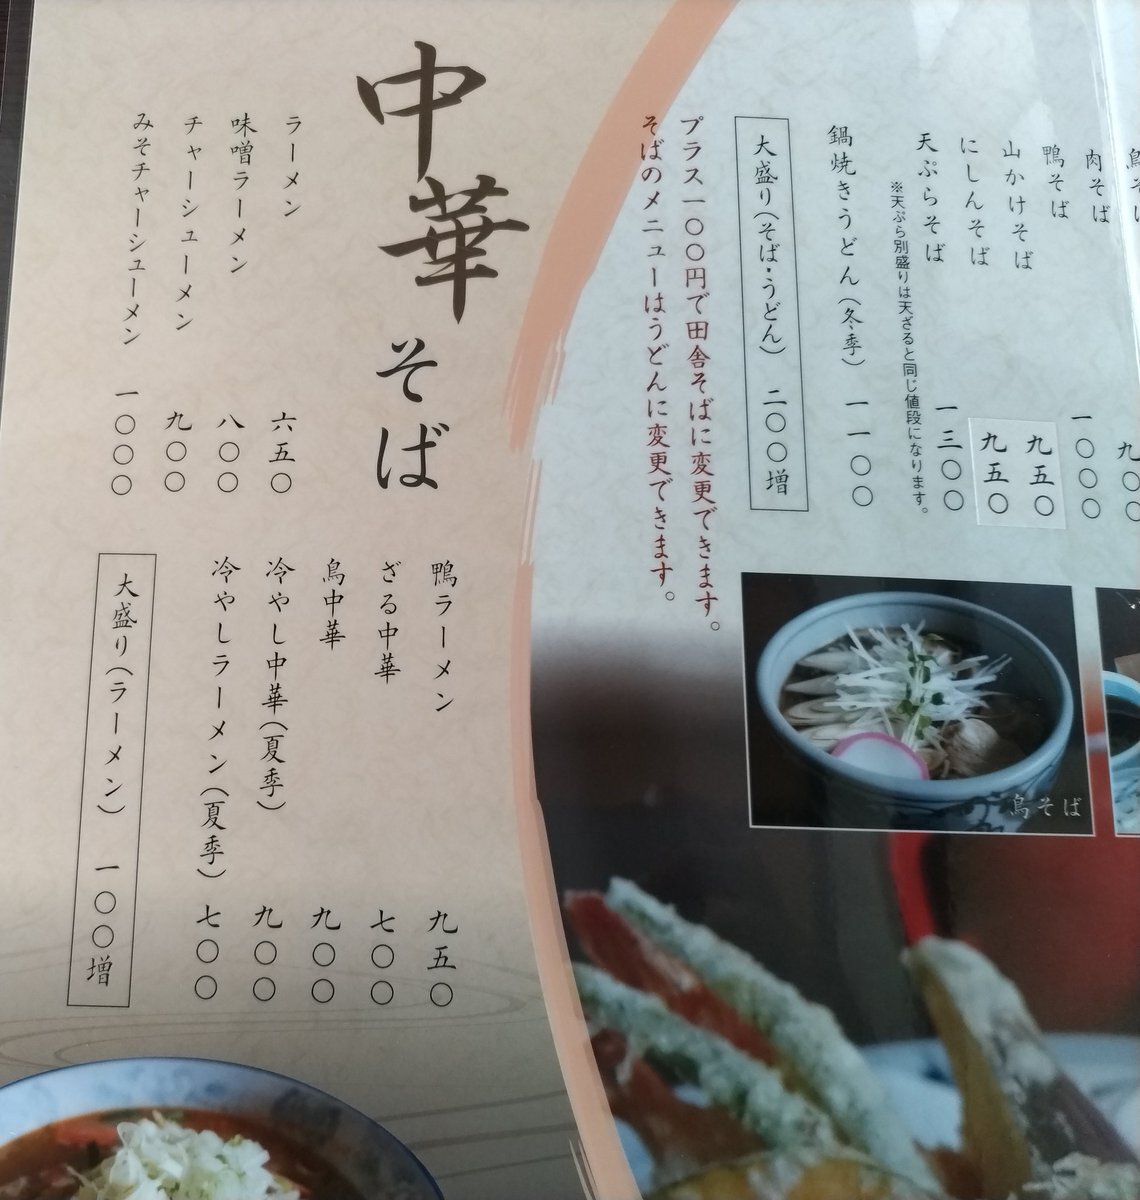 鳥そば
肉そば 九〇〇
鴨そば 一〇〇〇
山かけそば 九五〇
にしんそば 九五〇
天ぷらそば 一三〇〇
※天ぷら別盛りは天ざると同じ値段になります。
鍋焼きうどん(冬季) 一一〇〇
大盛り(そば・うどん) 二〇〇増
プラス一〇〇円で田舎そばに変更できます。
そばのメニューはうどんに変更できます。
鳥そば
中華そば
ラーメン 六五〇
味噌ラーメン 八〇〇
チャーシューメン 九〇〇
みそチャーシューメン 一〇〇〇
鴨ラーメン 九五〇
ざる中華 七〇〇
鳥中華 九〇〇
冷やし中華(夏季) 九〇〇
冷やしラーメン(夏季) 七〇〇
大盛り(ラーメン) 一〇〇増